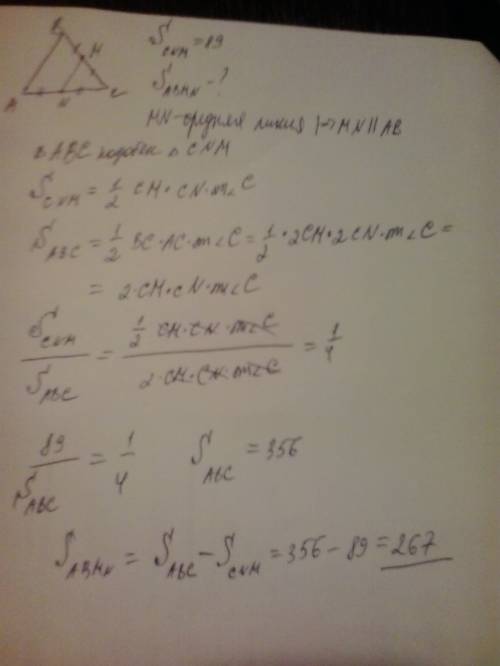 B
M
A N C
S CNM = 89
S ABMN - ?
MN - средняя линия |=> MN || AB
△ ABC подобен △ CNM
S CNM = 1/2 CM · CN · m∠C
S ABC = 1/2 BC · AC · m∠C = 1/2 · 2CM · 2CN · m∠C =
= 2 · CM · CN · m∠C
S CNM / S ABC = 1/2 CM · CN · m∠C / 2 · CM · CN · m∠C = 1/4
89 / S ABC = 1/4 S ABC = 356
S ABMN = S ABC - S CNM = 356 - 89 = 267